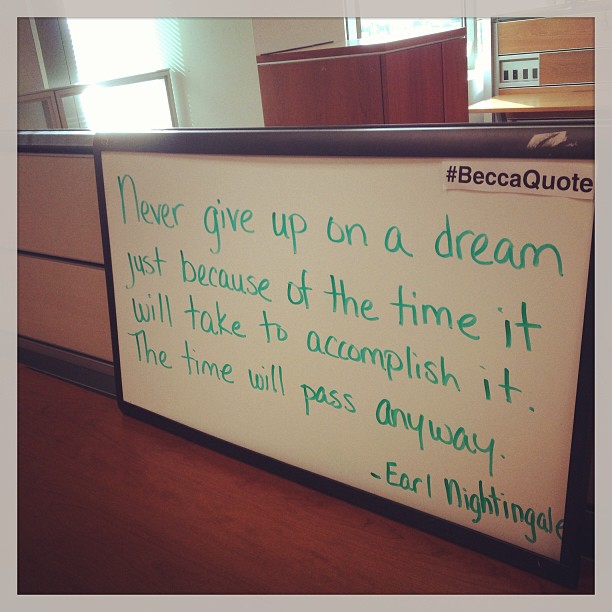 #BeccaQuote
Never give up on a dream
just because of the time it
will take to accomplish it.
The time will pass anyway.
-Earl Nightingale